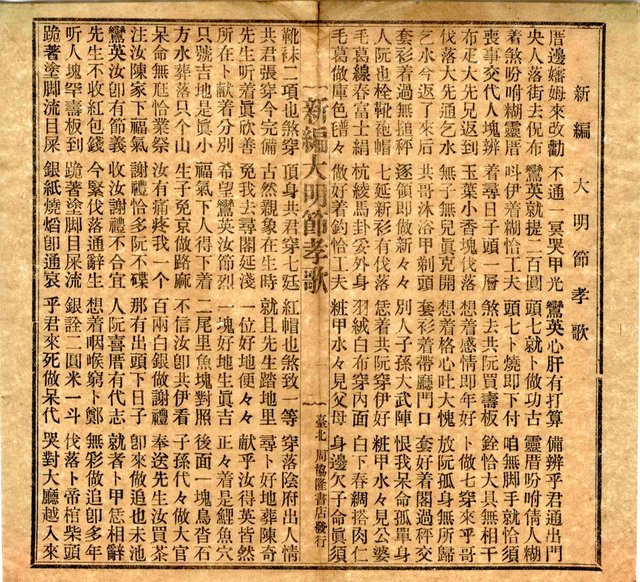 新編 大明節孝歌
厝邊嬸姆來改勸 不通一冥哭甲光 鸞英心肝有打算 備辨乎君通出門
央人落街去倪布 鸞英就提二百圓 頭七就卜做功古 靈厝吩咐倩人糊
着煞吩咐糊靈厝 呌伊着糊恰工夫 頭七卜燒即下付 咱無脚手就恰須
喪事交代人塊辨 着尋日子頭一層 煞去共阮買壽板 銓恰大具無相干
布疋大先兄返到 玉葉小香塊伐落 想着感情即年好 卜做七穿來乎哥
伐落大先通乞水 無子無兒真克開 想着格心吐大愧 放阮孤身無所歸
乞水今返了來后 共哥沐浴甲剃頭 套衫着帶廳門口 套好着閣過秤交
套衫着過無搥秤 逐領即做新々々 別人子孫大武陣 恨我呆命孤單身
人阮也栓靴袍帽 七延新衫有伐落 恁着共阮穿伊好 粧甲水々見公婆
毛葛線春富士絹 杭綾馬卦爻外身 羽絨白布穿內面 白下春綢搭肉仁
毛葛做庫色譜々 做好着釣恰工夫 粧甲水々見父母 身邊欠子命真須
新編大明節孝歌
一
臺北 周協隆書店發行
靴袜二項也煞穿 頂身共君穿七廷 紅帽也煞致一等 穿落陰府出人情
共君張穿今完備 古然親象在生時 就且先生踏地里 尋卜好地葬陳奇
先生听着眞欣善 免我去尋閣延淺 一位好地便々々 献乎汝得英皆然
所在卜献着分別 希望鸞英汝節烈 一塊好地生員真 正々着是鯉魚穴
只號吉地是眞小 福氣下人得下着 二尾里魚塊對照 後面一塊鳥沓石
方水葬落只个山 生子免京做路麻 不信汝卽共伊看 子孫代々做大官
呆命無尪恰業祭 汝有痛疼我一个 百両白銀做謝禮 奉送先生汝買茶
注汝陳家下福氣 謝禮恰多阮不碟 那有出頭下日子 卽來做追也未池
鸞英汝卽有節義 收汝謝禮不合宜 人阮喜厝有代志 就者卜甲恁相辭
先生不收紅包錢 今緊伐落通辭生 想着咽喉窮卜鄭 無彩做追卽多年
听人塊罕壽板到 跪著塗脚目屎流 銀詮二圓米一斗 伐落卜帝棺柴頭
跪著塗脚流目屎 銀紙燒熖卽通哀 乎君來死做呆代 哭對大廳越入來